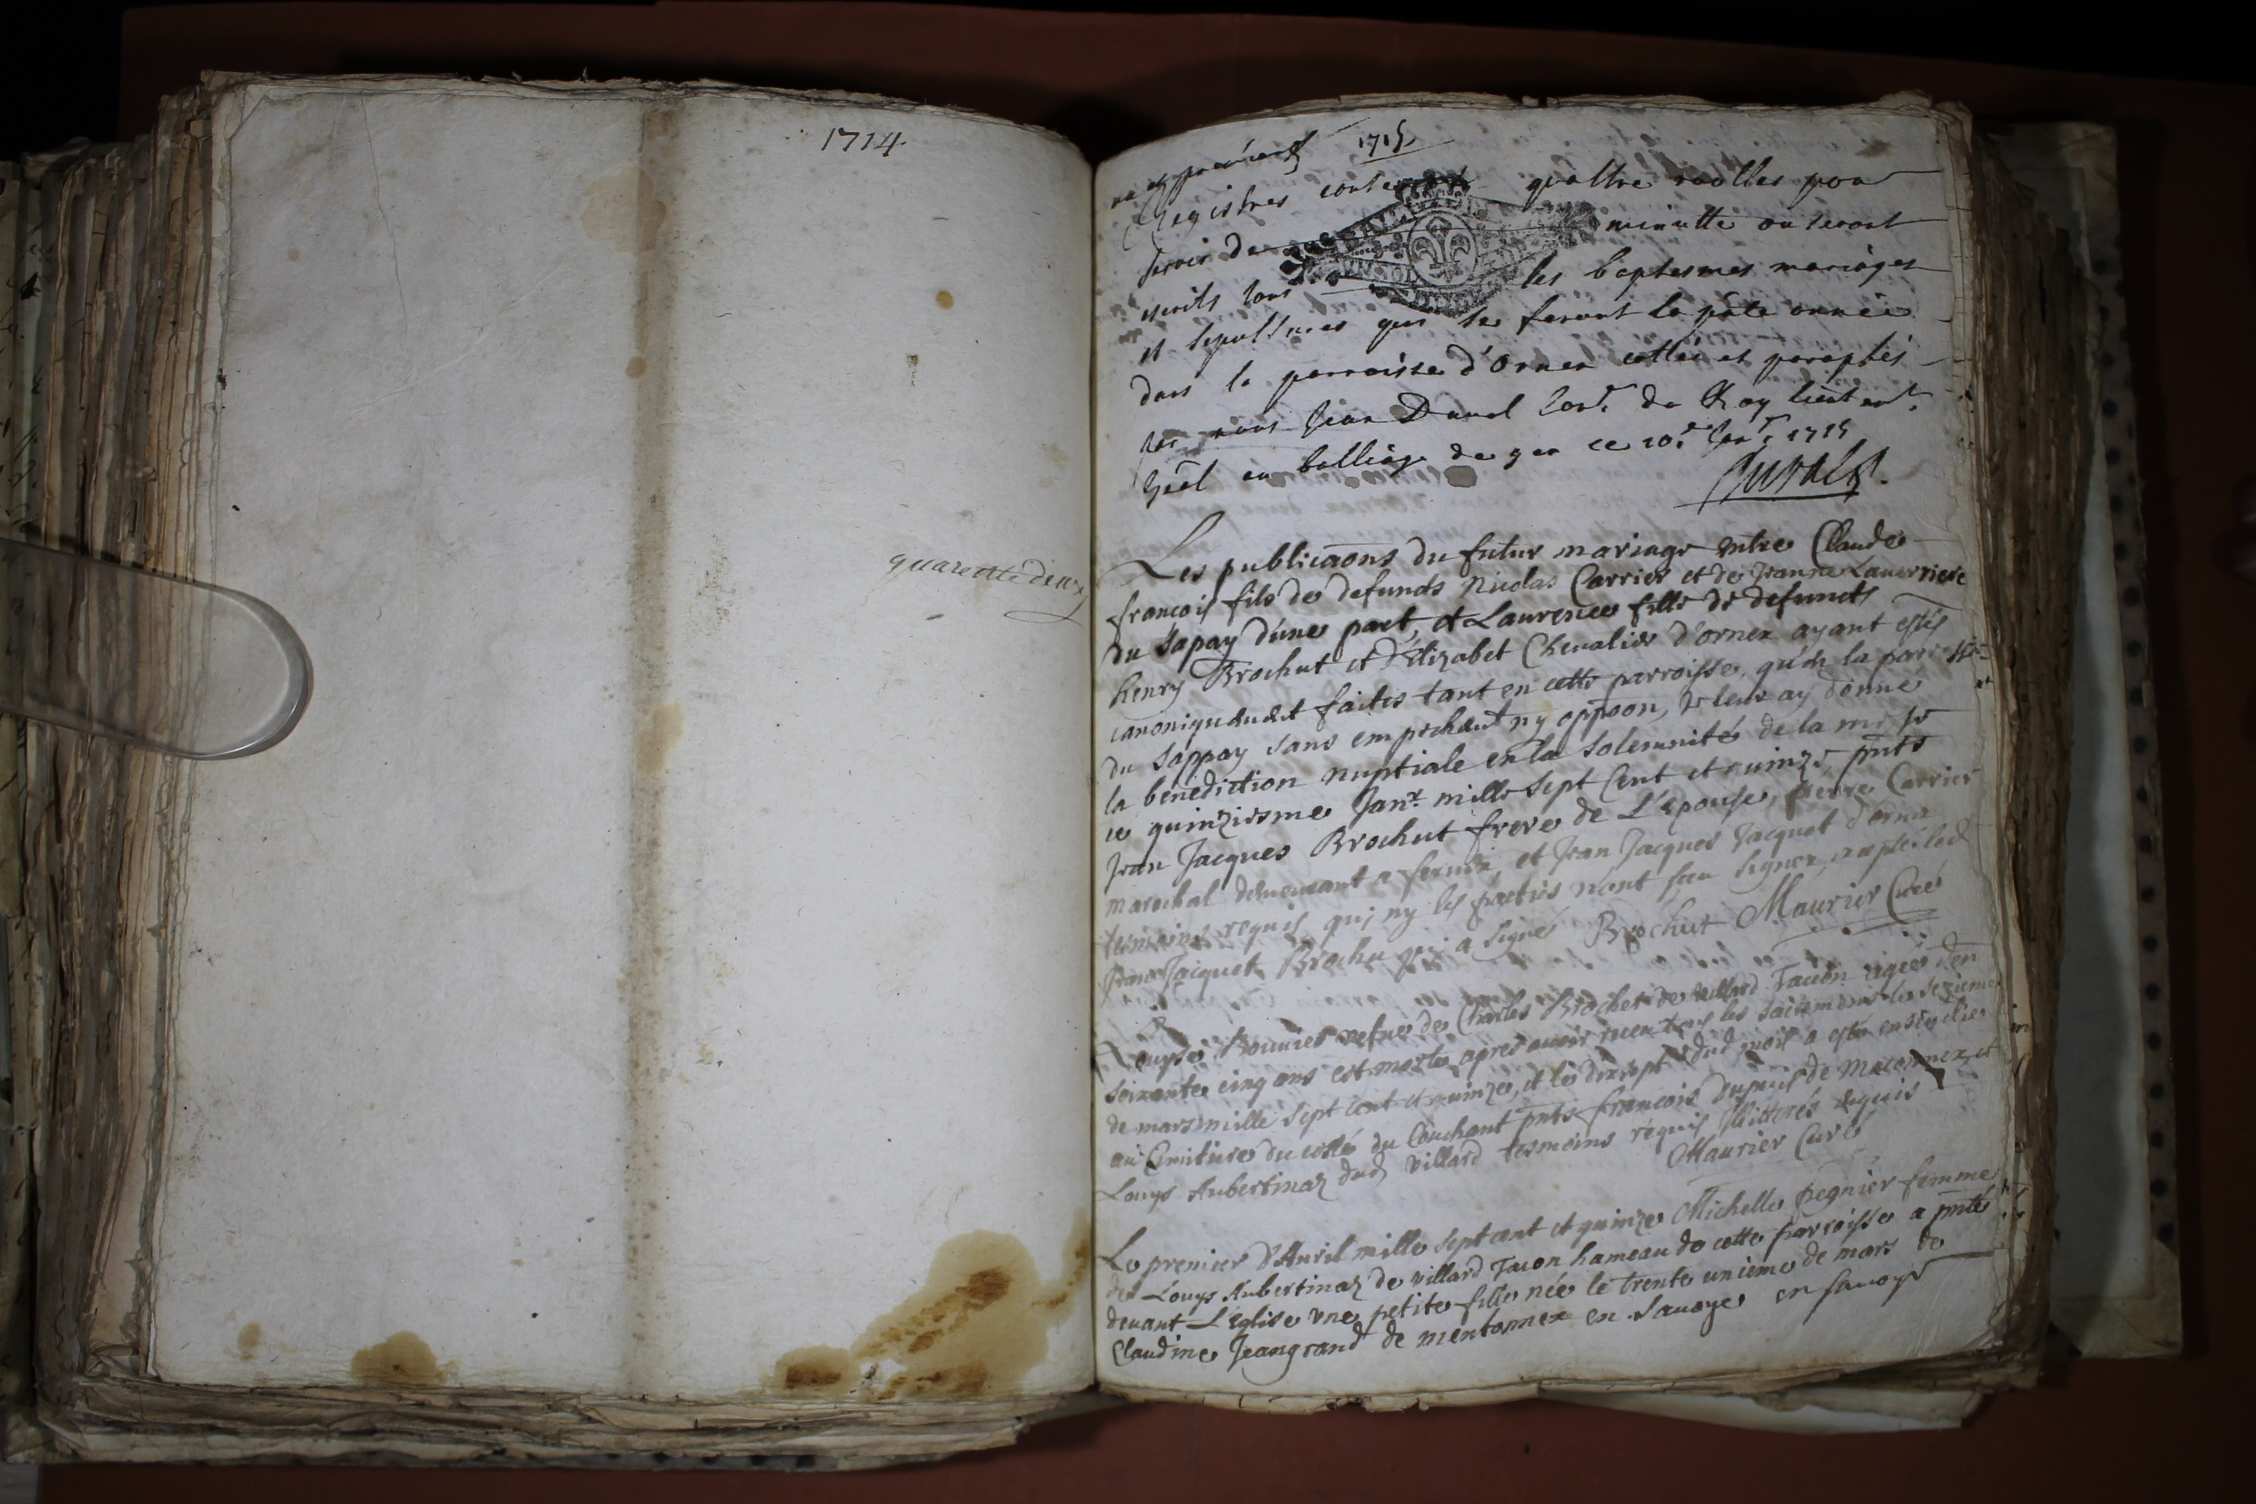 1714
quarente deux
1715
Registres contenant quattre roolles pour
servir de minutte ou seront
escrits tous les baptesmes mariages
et sepultures qui se feront la pñte année
dans la parroisse d'Ornex cottés et paraphés
par nous Jean Duval Con.r du Roy lieutent.
gñel au balliage de gex ce 10.e Jan.r 1715
Duval
Les publicãons du futur mariage entre Claude
francois fils de defunds Nicolas Carrier et de Jeanne Lauerriere
du Sapay d'une part, et Laurence fille de defuncts
henry Brochut et d'Elizabet Chevalier d'ornex ayant estés
canoniquement faites tant en cette parroisse, qu'en la parroisse
du Sappay sans empechemt ny oppõon, Je leur ay donné
la benediction nuptiale en la solemnité de la messe
ce quinziesme Janr. mille sept Cent et quinze, pñts
Jean Jacques Brochut frere de L'epouse, pierre Carrier
marechal demeurant a fernex, et Jean Jacques Jacquet d'ornex
tesmoins requis qui ny les parties n'ont sceu signer, excepté led
Jean Jacques Brochu qui a signé Brochut Maurier Curé
Louyse Bouvier vefue de Charles Brochet de villard Tacon agée d'en
soixante cinq ans est morte apres avoir receu tous les sacremens le sezieme
de mars mille sept cent et quinze, et le dixsept dud mois a esté enseuelie
au Cimitiere du costé du Couchant pñts francois Dupuis de Maconnex et
Louys Aubertinaz dud villard tesmoins requis Illitterés requis
Maurier Curé
Le premier d'Avril mille sept cent et quinze Michelle pegnier femme
de Louys Aubertinaz de villard Tacon hameau de cette parroisse a pñté
devant L'eglise une petite fille née le trente unieme de mars de
Claudine Jeangrand de mentonnex en Sauoye en sauoye